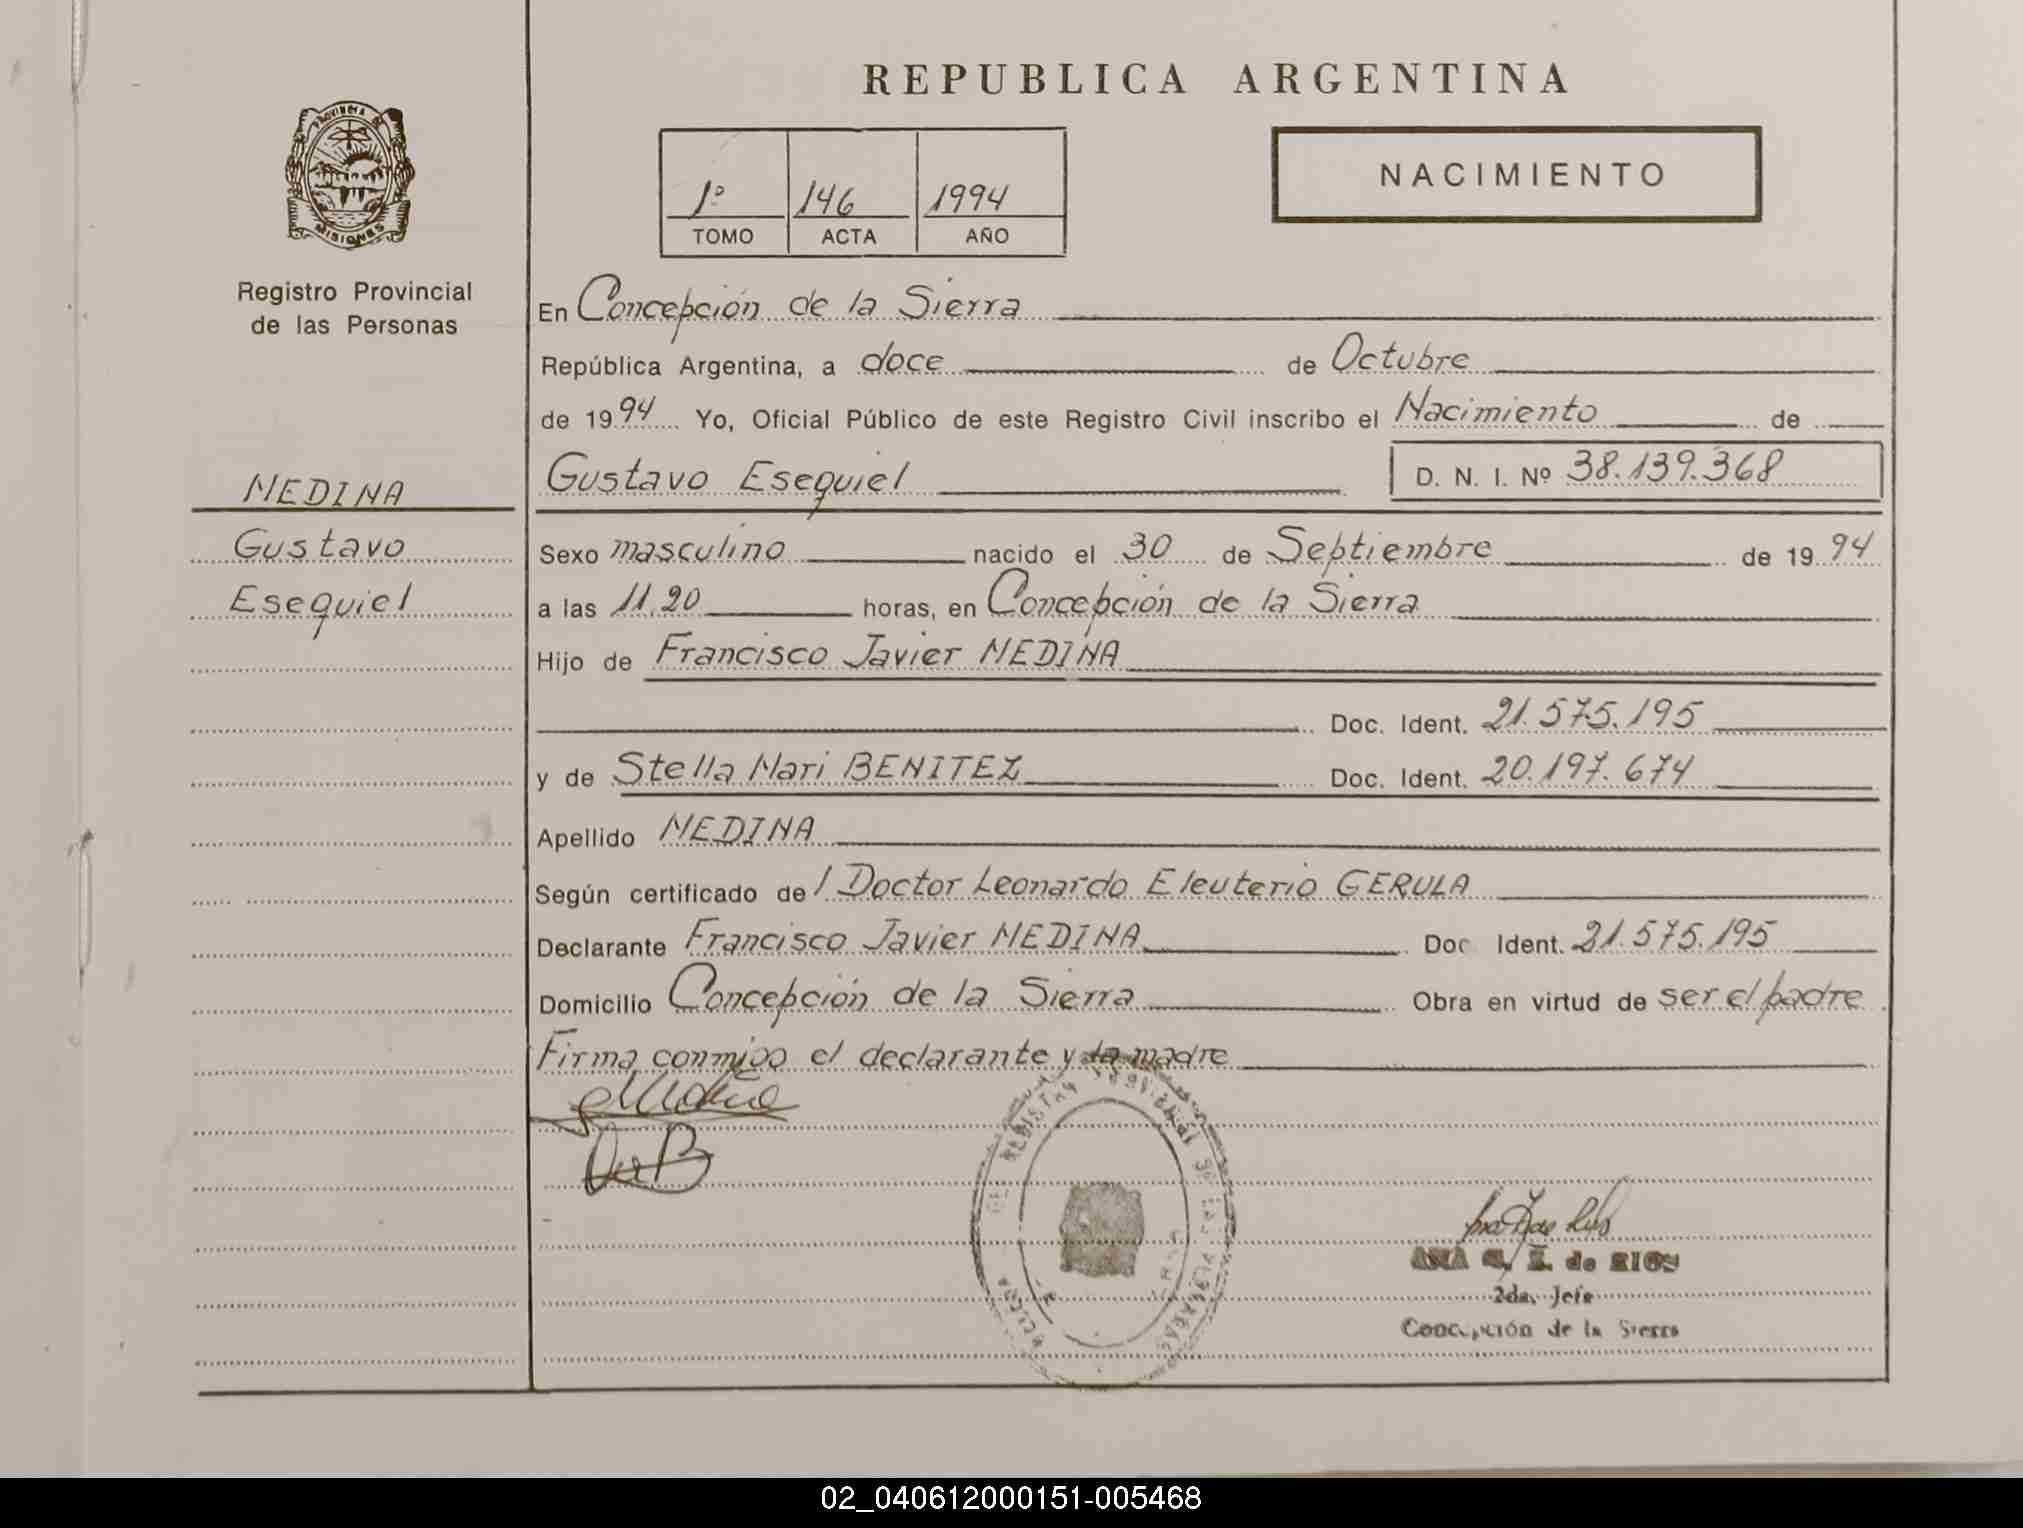 REPUBLICA ARGENTINA
PROVINCIA DE
MISIONES
Registro Provincial
de las Personas
1º 146 1994
TOMO ACTA AÑO
NACIMIENTO
En Concepción de la Sierra
República Argentina, a doce de Octubre
de 1994 Yo, Oficial Público de este Registro Civil inscribo el Nacimiento de
MEDINA
Gustavo
Esequiel
Gustavo Esequiel D. N. I. Nº 38.139.368
Sexo masculino nacido el 30 de Septiembre de 1994
a las 11.20 horas, en Concepción de la Sierra
Hijo de Francisco Javier MEDINA
Doc. Ident. 21.575.195
y de Stella Mari BENITEZ Doc. Ident. 20.197.674
Apellido MEDINA
Según certificado del Doctor Leonardo Eleuterio GERULA
Declarante Francisco Javier MEDINA Doc Ident. 21.575.195
Domicilio Concepción de la Sierra Obra en virtud de ser el padre
Firma conmigo el declarante y la madre
ANA de RIOS
2da. Jefe
Concepción de la Sierra
02_040612000151-005468